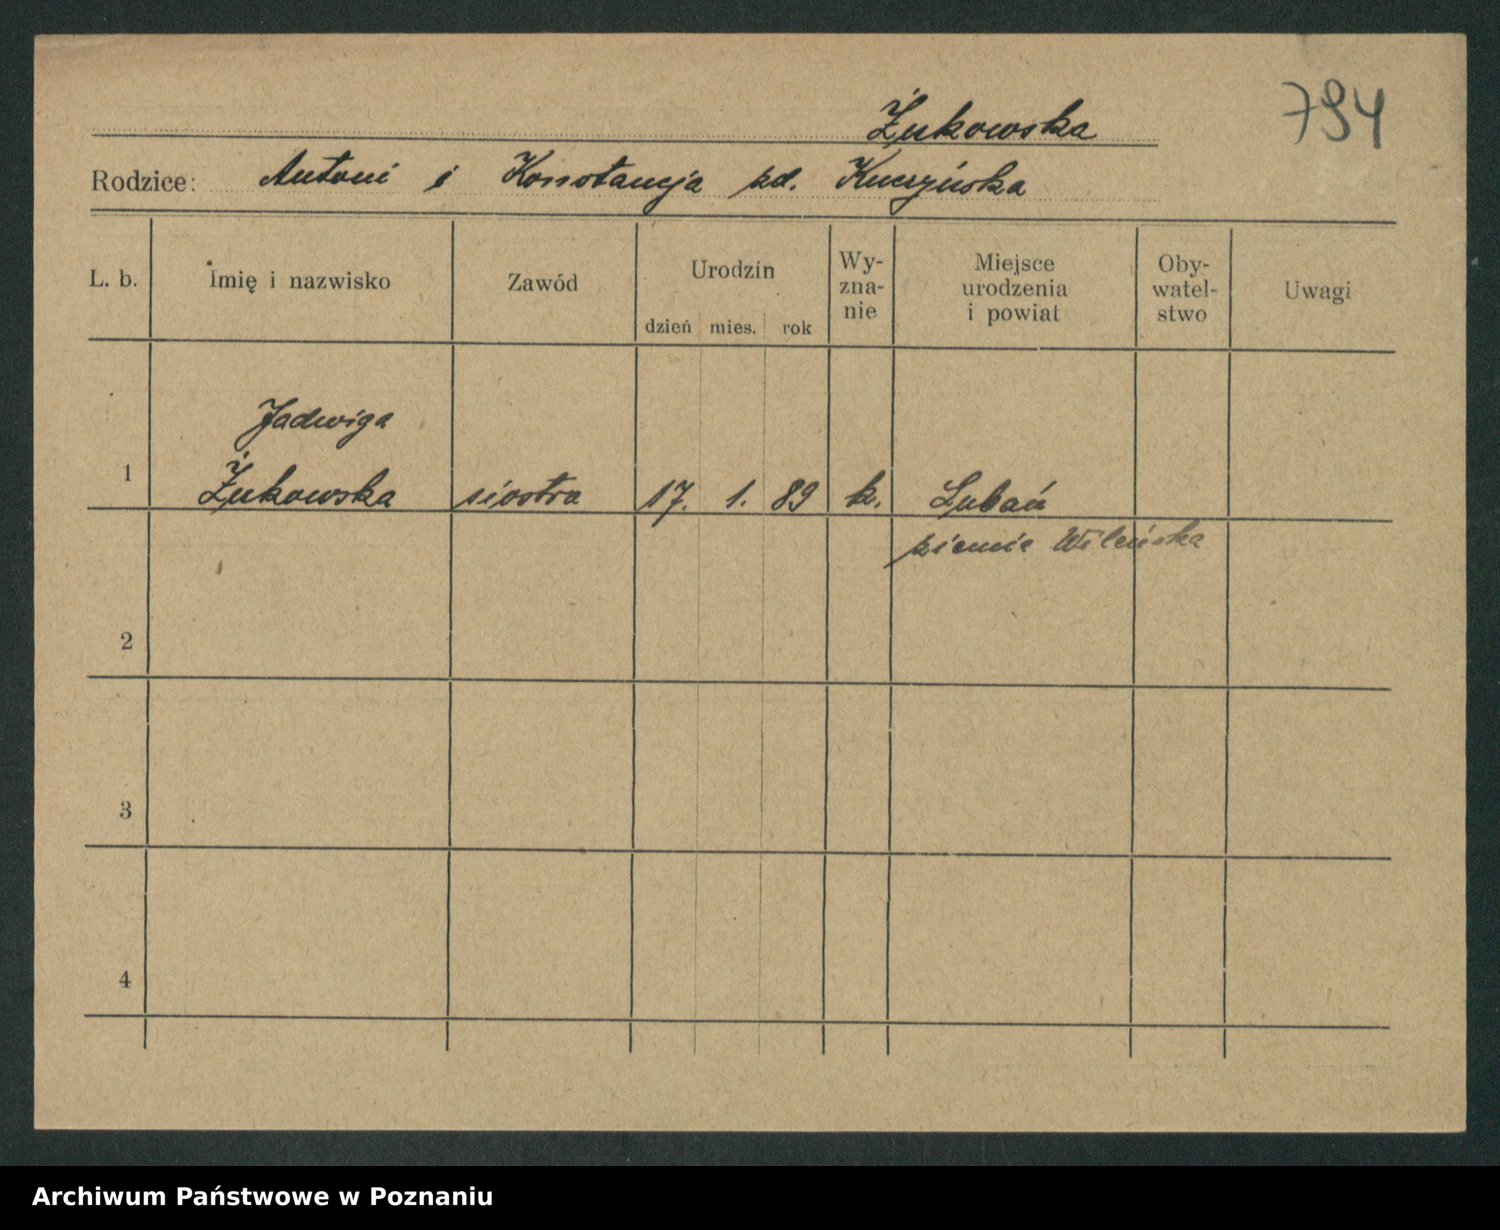 794
Żukowska
Rodzice: Antoni i Konstancja zd. Kuczyńska
L. b. Imię i nazwisko Zawód Urodzin Wy- Miejsce Oby- Uwagi
zna- urodzenia watel-
nie i powiat stwo
dzień mies. rok
Jadwiga
1 Żukowska siostra 17. 1. 89 k. Lubań
ziemie Wileńska
2
3
4
Archiwum Państwowe w Poznaniu